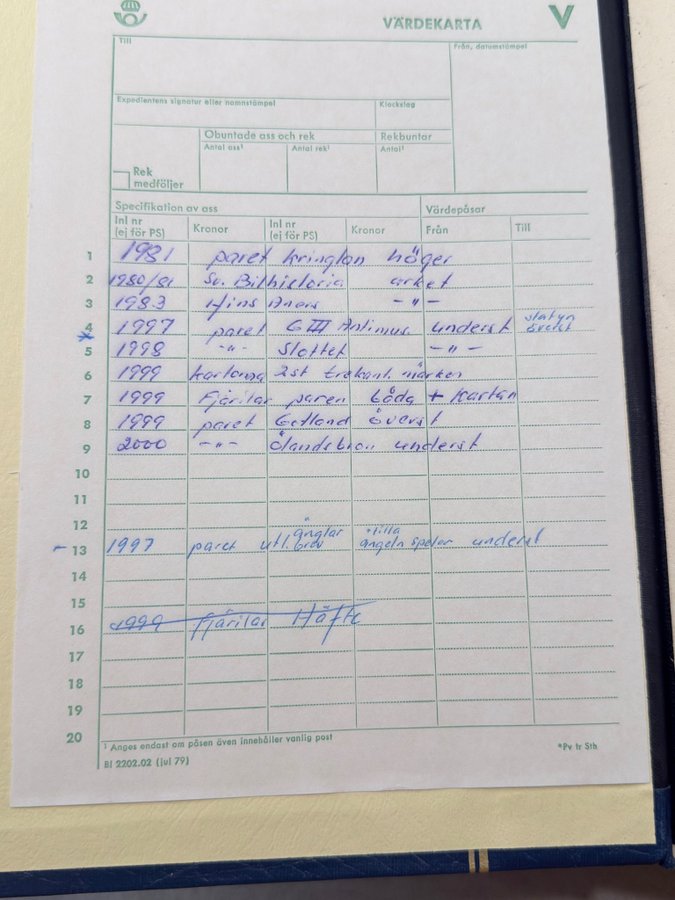 VÄRDEKARTA V
Till
Från, datumstämpel
Expedientens signatur eller namnstämpel Klockslag
Obuntade ass och rek Rekbuntar
Antal ass¹ Antal rek¹ Antal¹
Rek
medföljer
Specifikation av ass Värdepåsar
Inl nr
(ej för PS) Kronor Inl nr
(ej för PS) Kronor Från Till
1 1981 paret kringlan höger
2 1980/81 Sv. Bilhistoria arket
3 1983 -"-
statyn
4 1997 paret G III Antimus. underst överst
5 1998 -"- Slottet -"-
6 1999 2st trekant. märken
7 1999 Fjärilar paren båda + kartan
8 1999 paret Gotland överst
9 2000 -"- Ölandsbron underst
10
11
12
änglar lilla
13 1997 paret utl. brev ängeln spelar underst
14
15
16 1999 fjärilar Häfte
17
18
19
20
¹ Anges endast om påsen även innehåller vanlig post
*Pv tr Sth
Bl 2202.02 (jul 79)